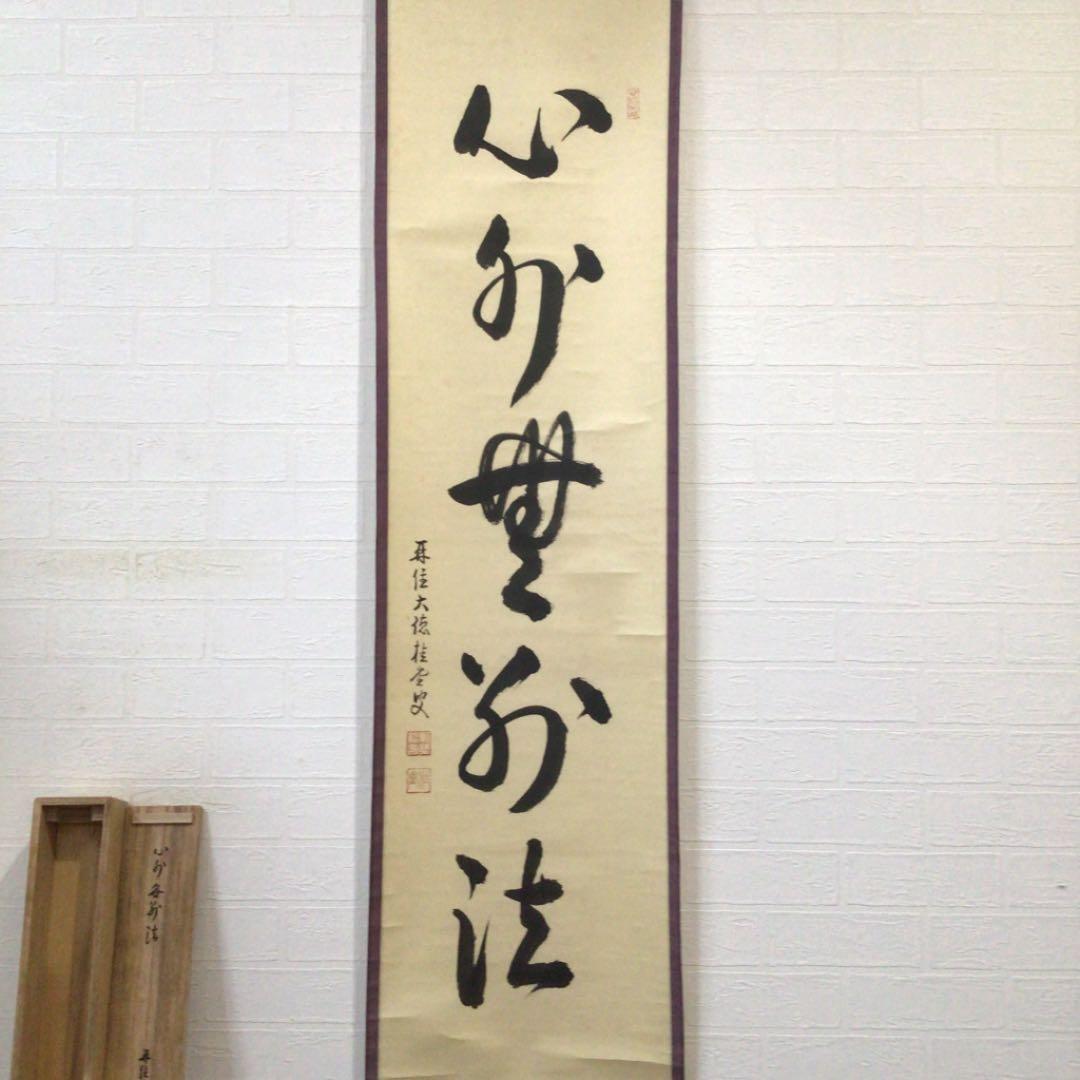 心外無別法
再住大徳桂堂叟
心外無別法
再住